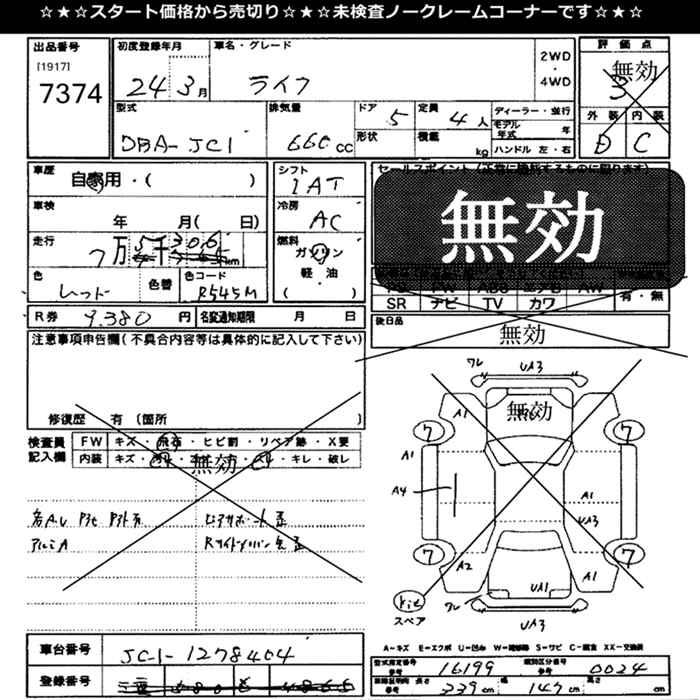 ☆★☆スタート価格から売切り☆★☆未検査ノークレームコーナーです☆★☆
出品番号 初度登録年月 車名・グレード 2WD ・ 4WD 評価点
[1917]
7374 24 3月 ライフ 無効
3
型式 排気量 ドア 5 定員 4人 ディーラー・並行 外装 内装
DBA-JC1 660cc 形状 積載 kg モデル年式 年 D C
ハンドル 左・右
車歴 シフト セールスポイント
自家用・( ) IAT
車検 冷房 無効
年 月( 日) AC
走行 燃料
7万5千306km ガソリン
色 色替 色コード 軽・油
レッド R545M ( )
SR ナビ TV カワ 有・無
R券 9.380円 名変通知期限 月 日 後日品
無効
注意事項申告欄(不具合内容等は具体的に記入して下さい)
ワレ UA3
無効
A1
修復歴 有(箇所 )
検査員記入欄 FW キズ・飛石・ヒビ割・リペア跡・X要
内装 キズ・ キレ・破レ
無効
7 7
A1
A4 A1
UA3
アルミA
7 7
A2 UA1 A1
スペア ワレ UA3
A=キズ E=エクボ U=凹み W=補修跡 S=サビ C=腐食 XX=交換済
車台番号 JC1-1278404
型式指定番号 参考 16199 類別区分番号 参考 0024
登録番号
参考 339cm 幅 147cm 高さ cm